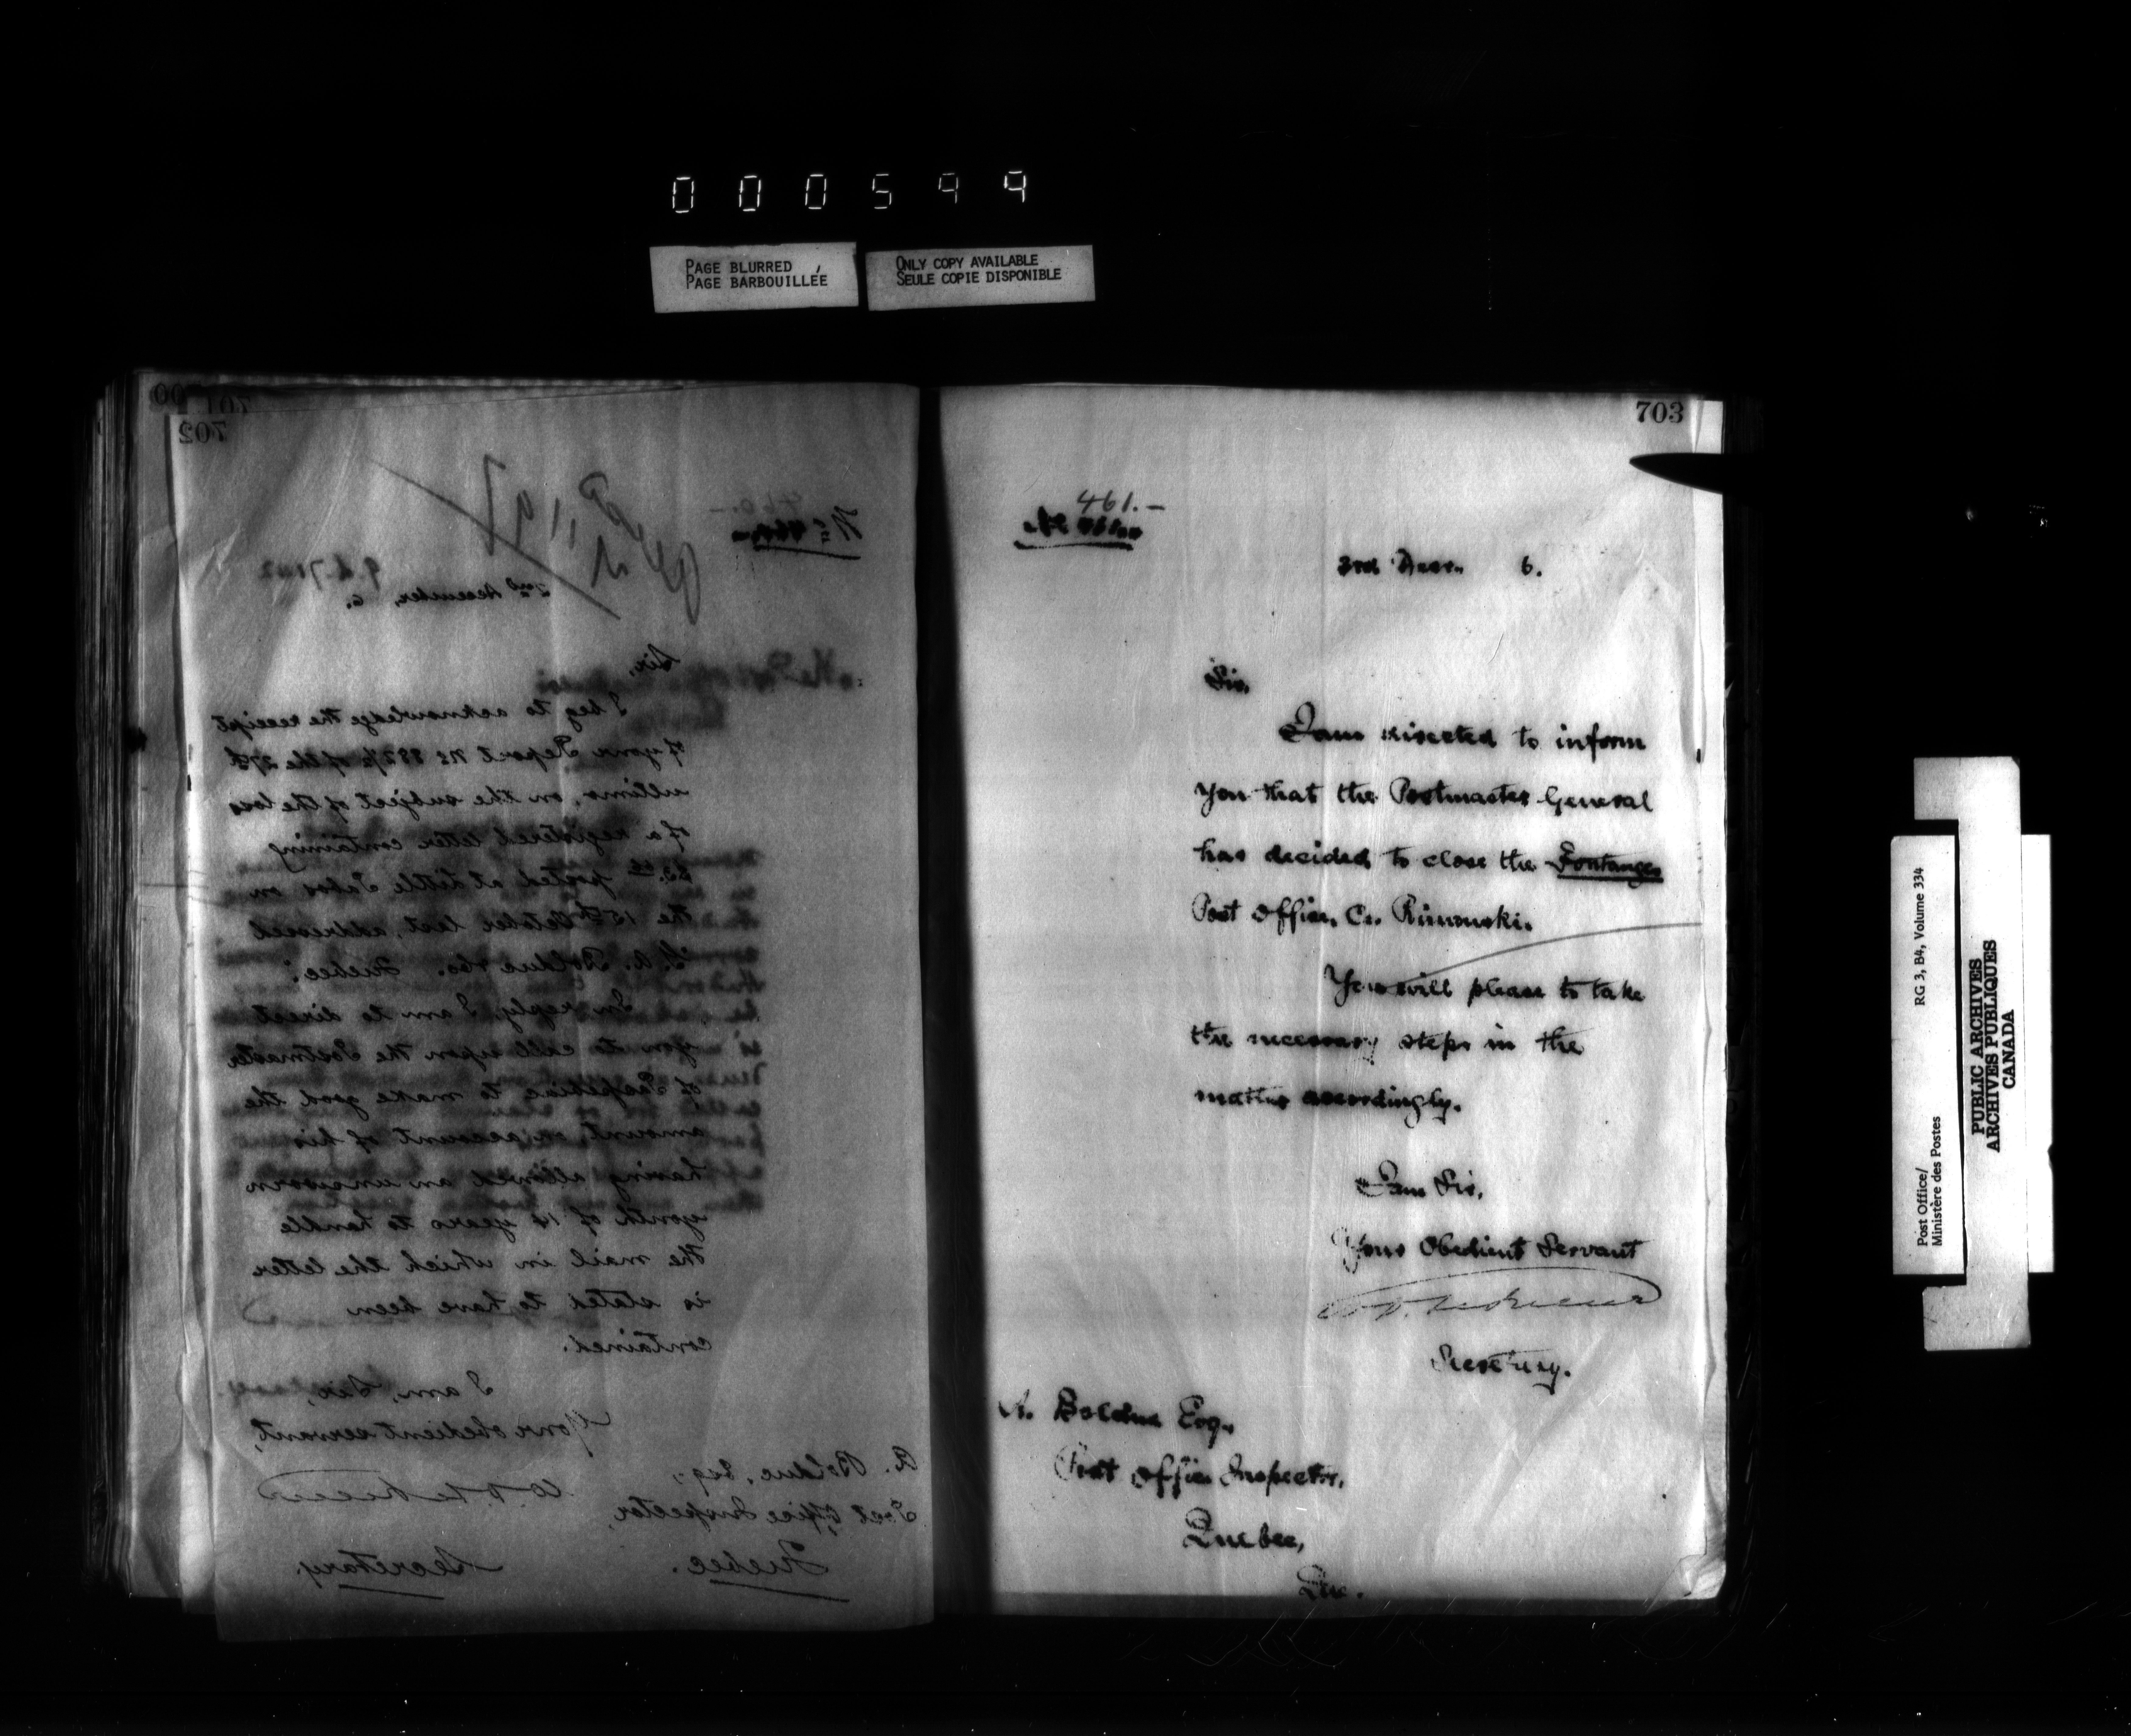 000599
PAGE BLURRED
PAGE BARBOUILLÉE
ONLY COPY AVAILABLE
SEULE COPIE DISPONIBLE
701
702
460.-
No 460.-
2nd December, 6.
Sir,
I beg to acknowledge the receipt
of your Report No 882/2 of the 27th
ultimo, on the subject of the loss
of a registered letter containing
posted at Little Pabos on
the 15th October last, addressed
Bolduc & Co. Quebec.
In reply, I am to direct
you to call upon the Postmaster
of Paspebiac to make good the
amount, on account of his
having allowed an unsworn
youth of 14 years to handle
the mail in which the letter
is stated to have been
contained.
I am, Sir,
Your obedient servant,
Secretary.
A. Bolduc, Esq.,
Post Office Inspector,
Quebec.
703
461.-
No 461.-
3rd Decr. 6.
Sir,
I am directed to inform
you that the Postmaster General
has decided to close the Fontanges
Post Office, Co. Rimouski.
You will please to take
the necessary steps in the
matter accordingly.
I am Sir,
Your Obedient Servant
Secretary.
A. Bolduc Esq.,
Post Office Inspector,
Quebec,
Que.
Post Office/
Ministère des Postes
RG 3, B4, Volume 334
PUBLIC ARCHIVES
ARCHIVES PUBLIQUES
CANADA